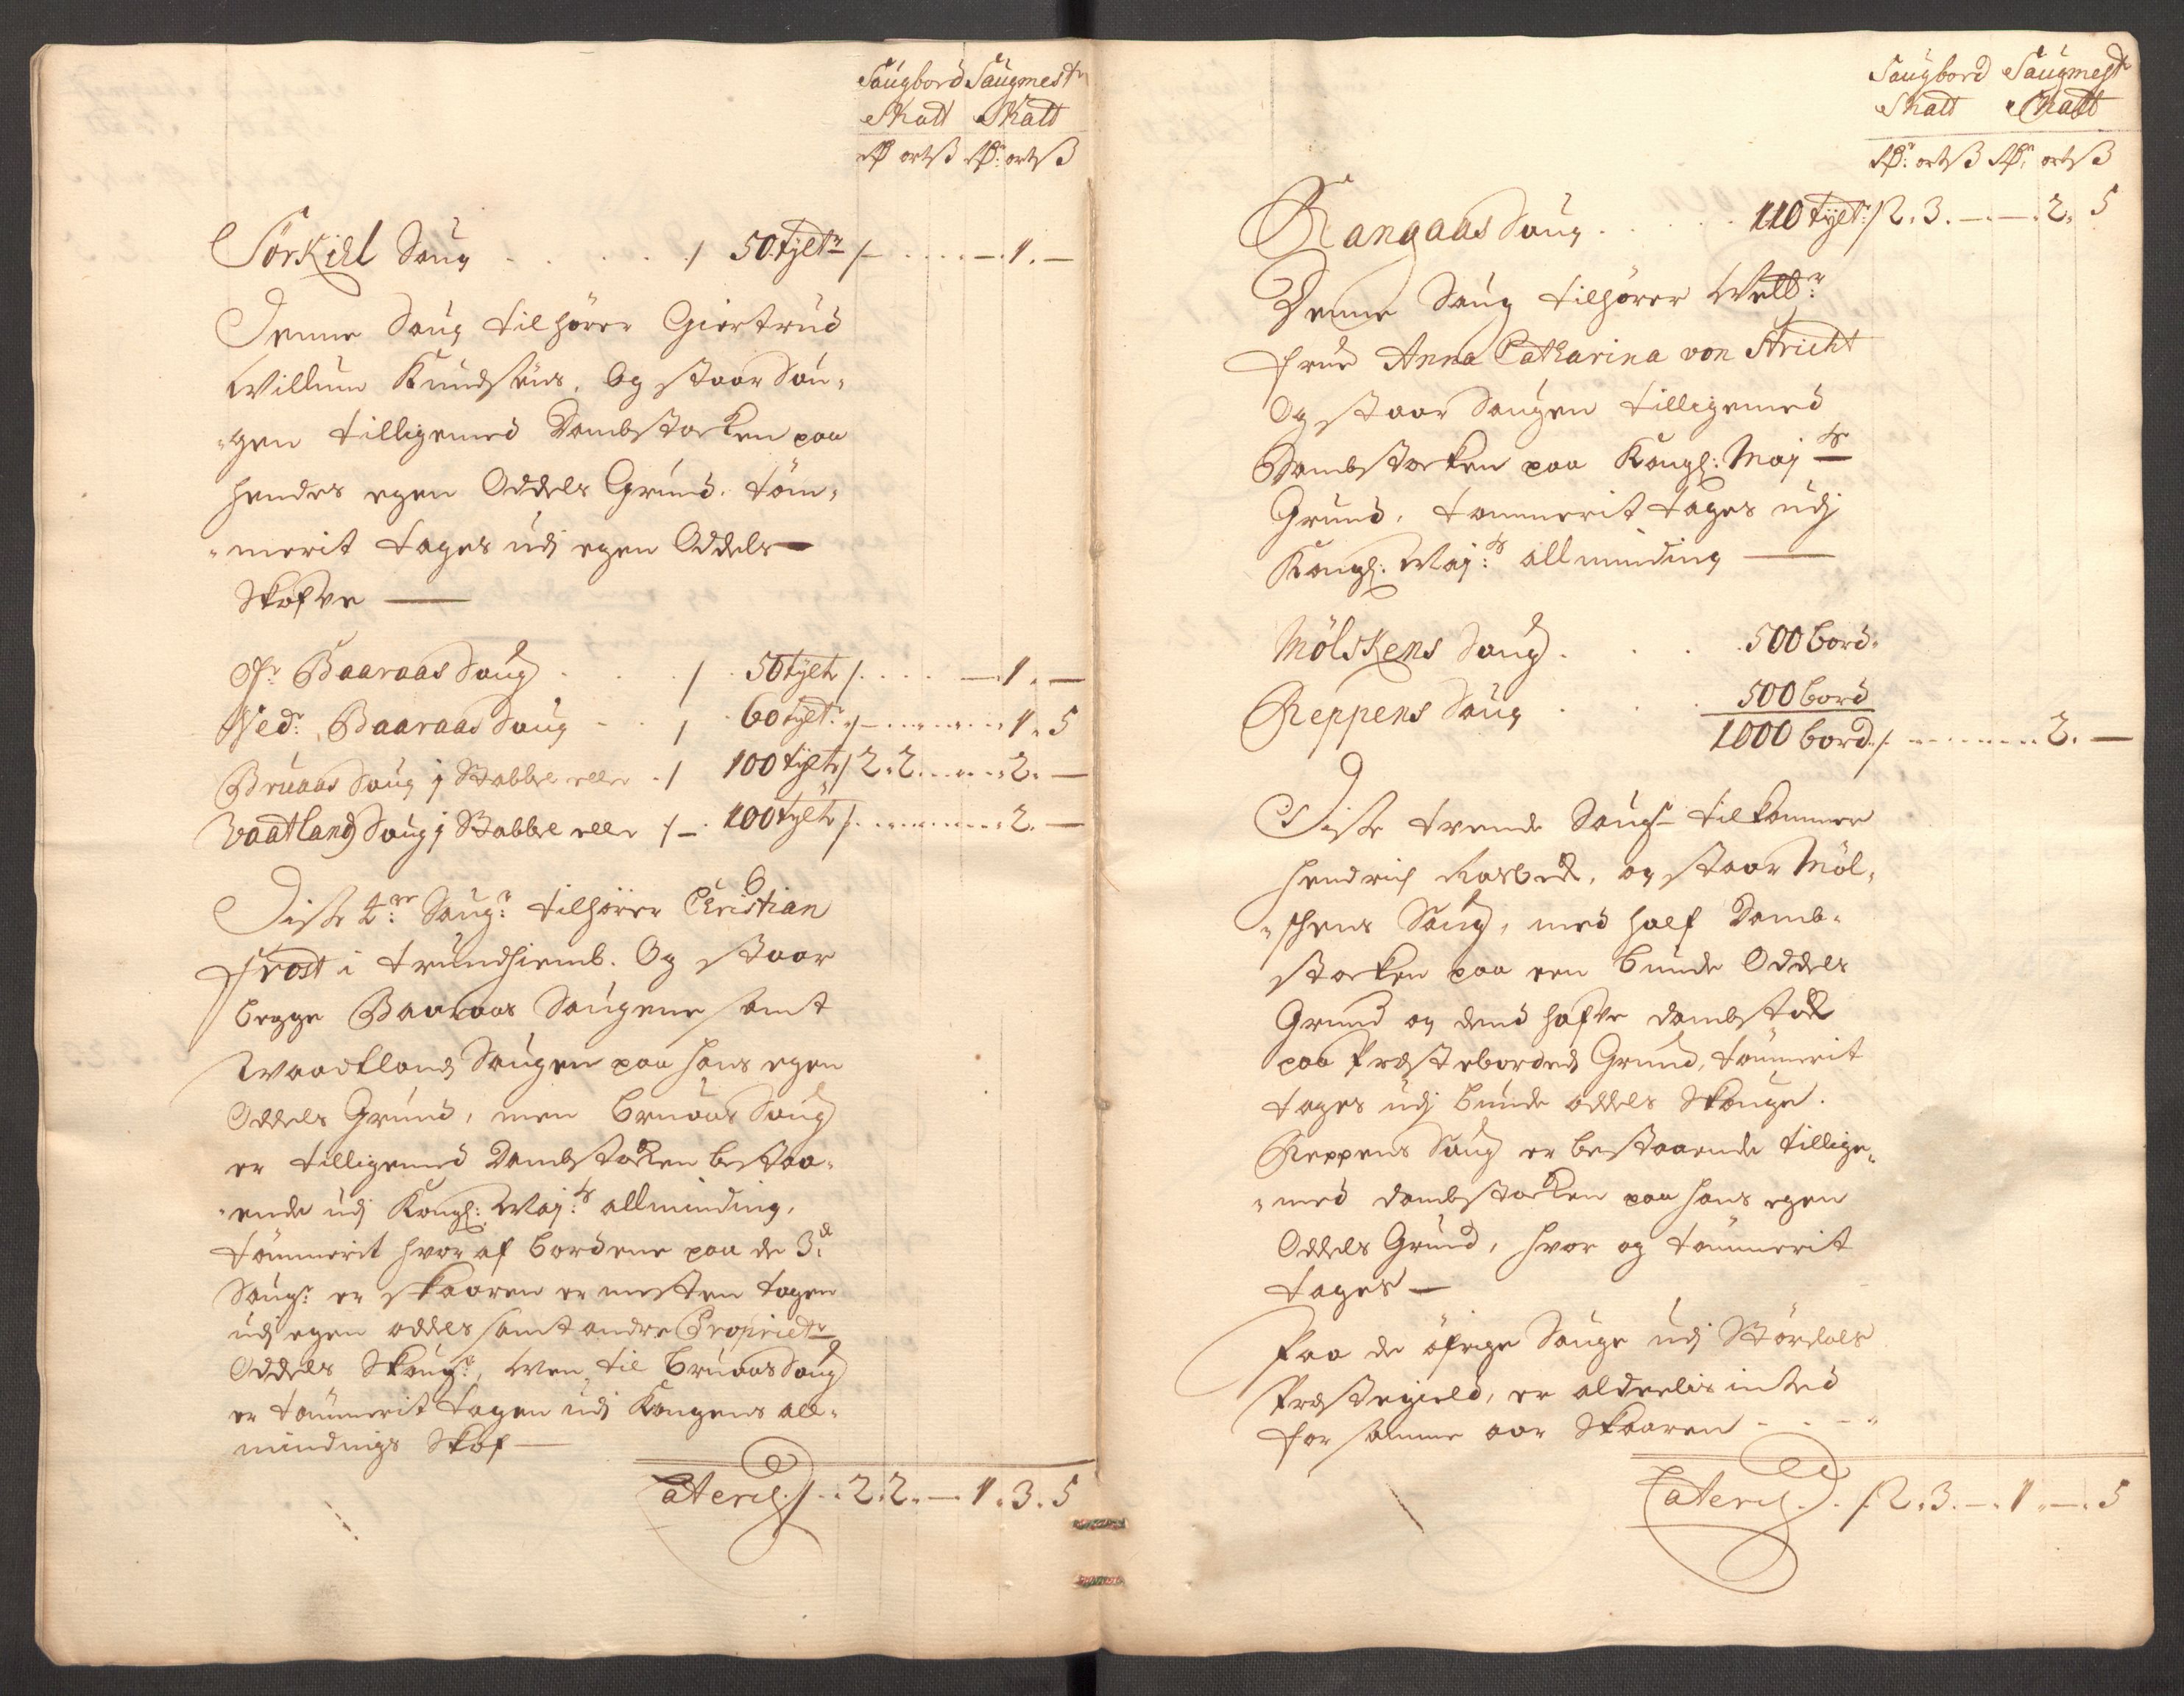 Saugbord Saugmestr
Skatt Skatt
Rdr ort ß Rdr: ort ß
Sørkihl Saug . . . . . / 50 tyltr /- . . . . - . 1 . -
Denne Saug tilhører Giertrud
Willum Knudsøns, Og staar Sau„
„gen tilligemed Dambstocken paa
hendes egen Oddels Grund. tøm„
„merit tages udj egen Oddels
Skofve —
Øfr Baaraas Saug . . . / . 50 tyltr / . . . . - 1 . -
Nedr: Baaraas Saug - . . / . 60 tyltr /- . . . . . 1 . 5
Bruaas Saug j Stabbel eller . / 100 tyltr / 2 . 2 . . . . . 2 . -
Vaatland Saug j Stabbel eller /- . 100 tyltr / . . . . . . 2 . -
Disse 4re Saugr: tilhører Christian
Frost i trundhiemb. Og staar
begge Baaraas Saugene samt
Waadtlands Saugen paa hans egen
Oddels Grund, men Bruaas Saug
er tilligemed Dambstocken bestaa„
„ende udj Kongl: May:ts allminding,
tømmerit hvor af bordene paa de 3de
Saugr: er skaaren er mesten tagen
udj egen oddels samt andre Proprietr
Oddels Skaugr:, Men til Bruaas Saug
er tømmerit tagen udj Kongens all„
mindings Skof —
Laterel: / - . 2 . 2 . - . 1 . 3 . 5
Saugbord Saugmestr
Skatt Skatt
Rdr: ort ß Rdr: ort ß
Rangaas Saug . . . . . 110 tyltr: / 2 . 3 . - . - . 2 . 5
Denne Saug tilhører Welbr:
Frue Anna Catharina von Stricht
Og staar Saugen tilligemed
Dambstocken paa Kongl: Mayts
Grund, tømmerit tages udj
Kongl: May:ts allminding —
Mølskens Saug . . . . 500 bord.
Reppens Saug . . . 500 bord
1000 bord / . . . . . . . 2 . -
Disse tvende Saugr tilkommer
Hendrich , og staar Møl„
„skens Saug, med half Damb„
stocken paa een bunde Oddels
Grund og dend hafve dambstok
paa Præstebordeds Grund, tømmerit
tages udj bunde oddels Skauge.
Reppens Saug er bestaaende tillige„
„med dambstocken paa hans egen
Oddels Grund, hvor og tømmerit
tages —
Paa de øfrige Sauge udj Størdals
Præstegield, er aldeelis inted
for samme aar Skaaren . . - .
Laterel: . / 2 . 3 . - . 1 . - . 5